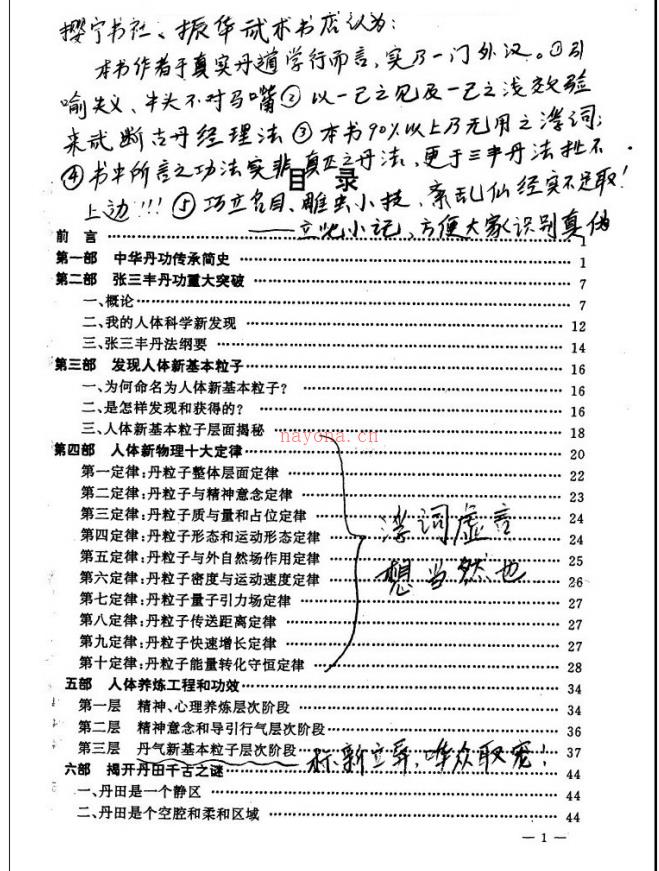 撄宁书社、振华武术书店认为:
本书作者于真实丹道学行而言,实乃一门外汉。①引
喻失义、牛头不对马嘴②以一己之见及一己之浅效验
来武断古丹经理法③本书90%以上乃无用之浮词;
④书中所言之功法实非真正之丹法,更于三丰丹法扯不
上边!!!⑤巧立名目、雕虫小技,紊乱仙经实不足取!
——立此小记,方便大家识别真伪
目 录
前 言 1
第一部 中华丹功传承简史 1
第二部 张三丰丹功重大突破 7
一、概论 7
二、我的人体科学新发现 12
三、张三丰丹法纲要 14
第三部 发现人体新基本粒子 16
一、为何命名为人体新基本粒子? 16
二、是怎样发现和获得的? 16
三、人体新基本粒子层面揭秘 18
nayona.cn
第四部 人体新物理十大定律 20
第一定律:丹粒子整体层面定律 22
第二定律:丹粒子与精神意念定律 23
第三定律:丹粒子质与量和占位定律 24
第四定律:丹粒子形态和运动形态定律 24
第五定律:丹粒子与外自然场作用定律 25
第六定律:丹粒子密度与运动速度定律 26
第七定律:丹粒子量子引力场定律 27
第八定律:丹粒子传送距离定律 27
第九定律:丹粒子快速增长定律 27
第十定律:丹粒子能量转化守恒定律 28
浮词虚言
想当然也
五部 人体养炼工程和功效 34
第一层 精神、心理养炼层次阶段 34
第二层 精神意念和导引行气层次阶段 36
第三层 丹气新基本粒子层次阶段 37
标新立异,哗众取宠!
六部 揭开丹田千古之谜 44
一、丹田是一个静区 44
二、丹田是个空腔和柔和区域 44
— 1 —